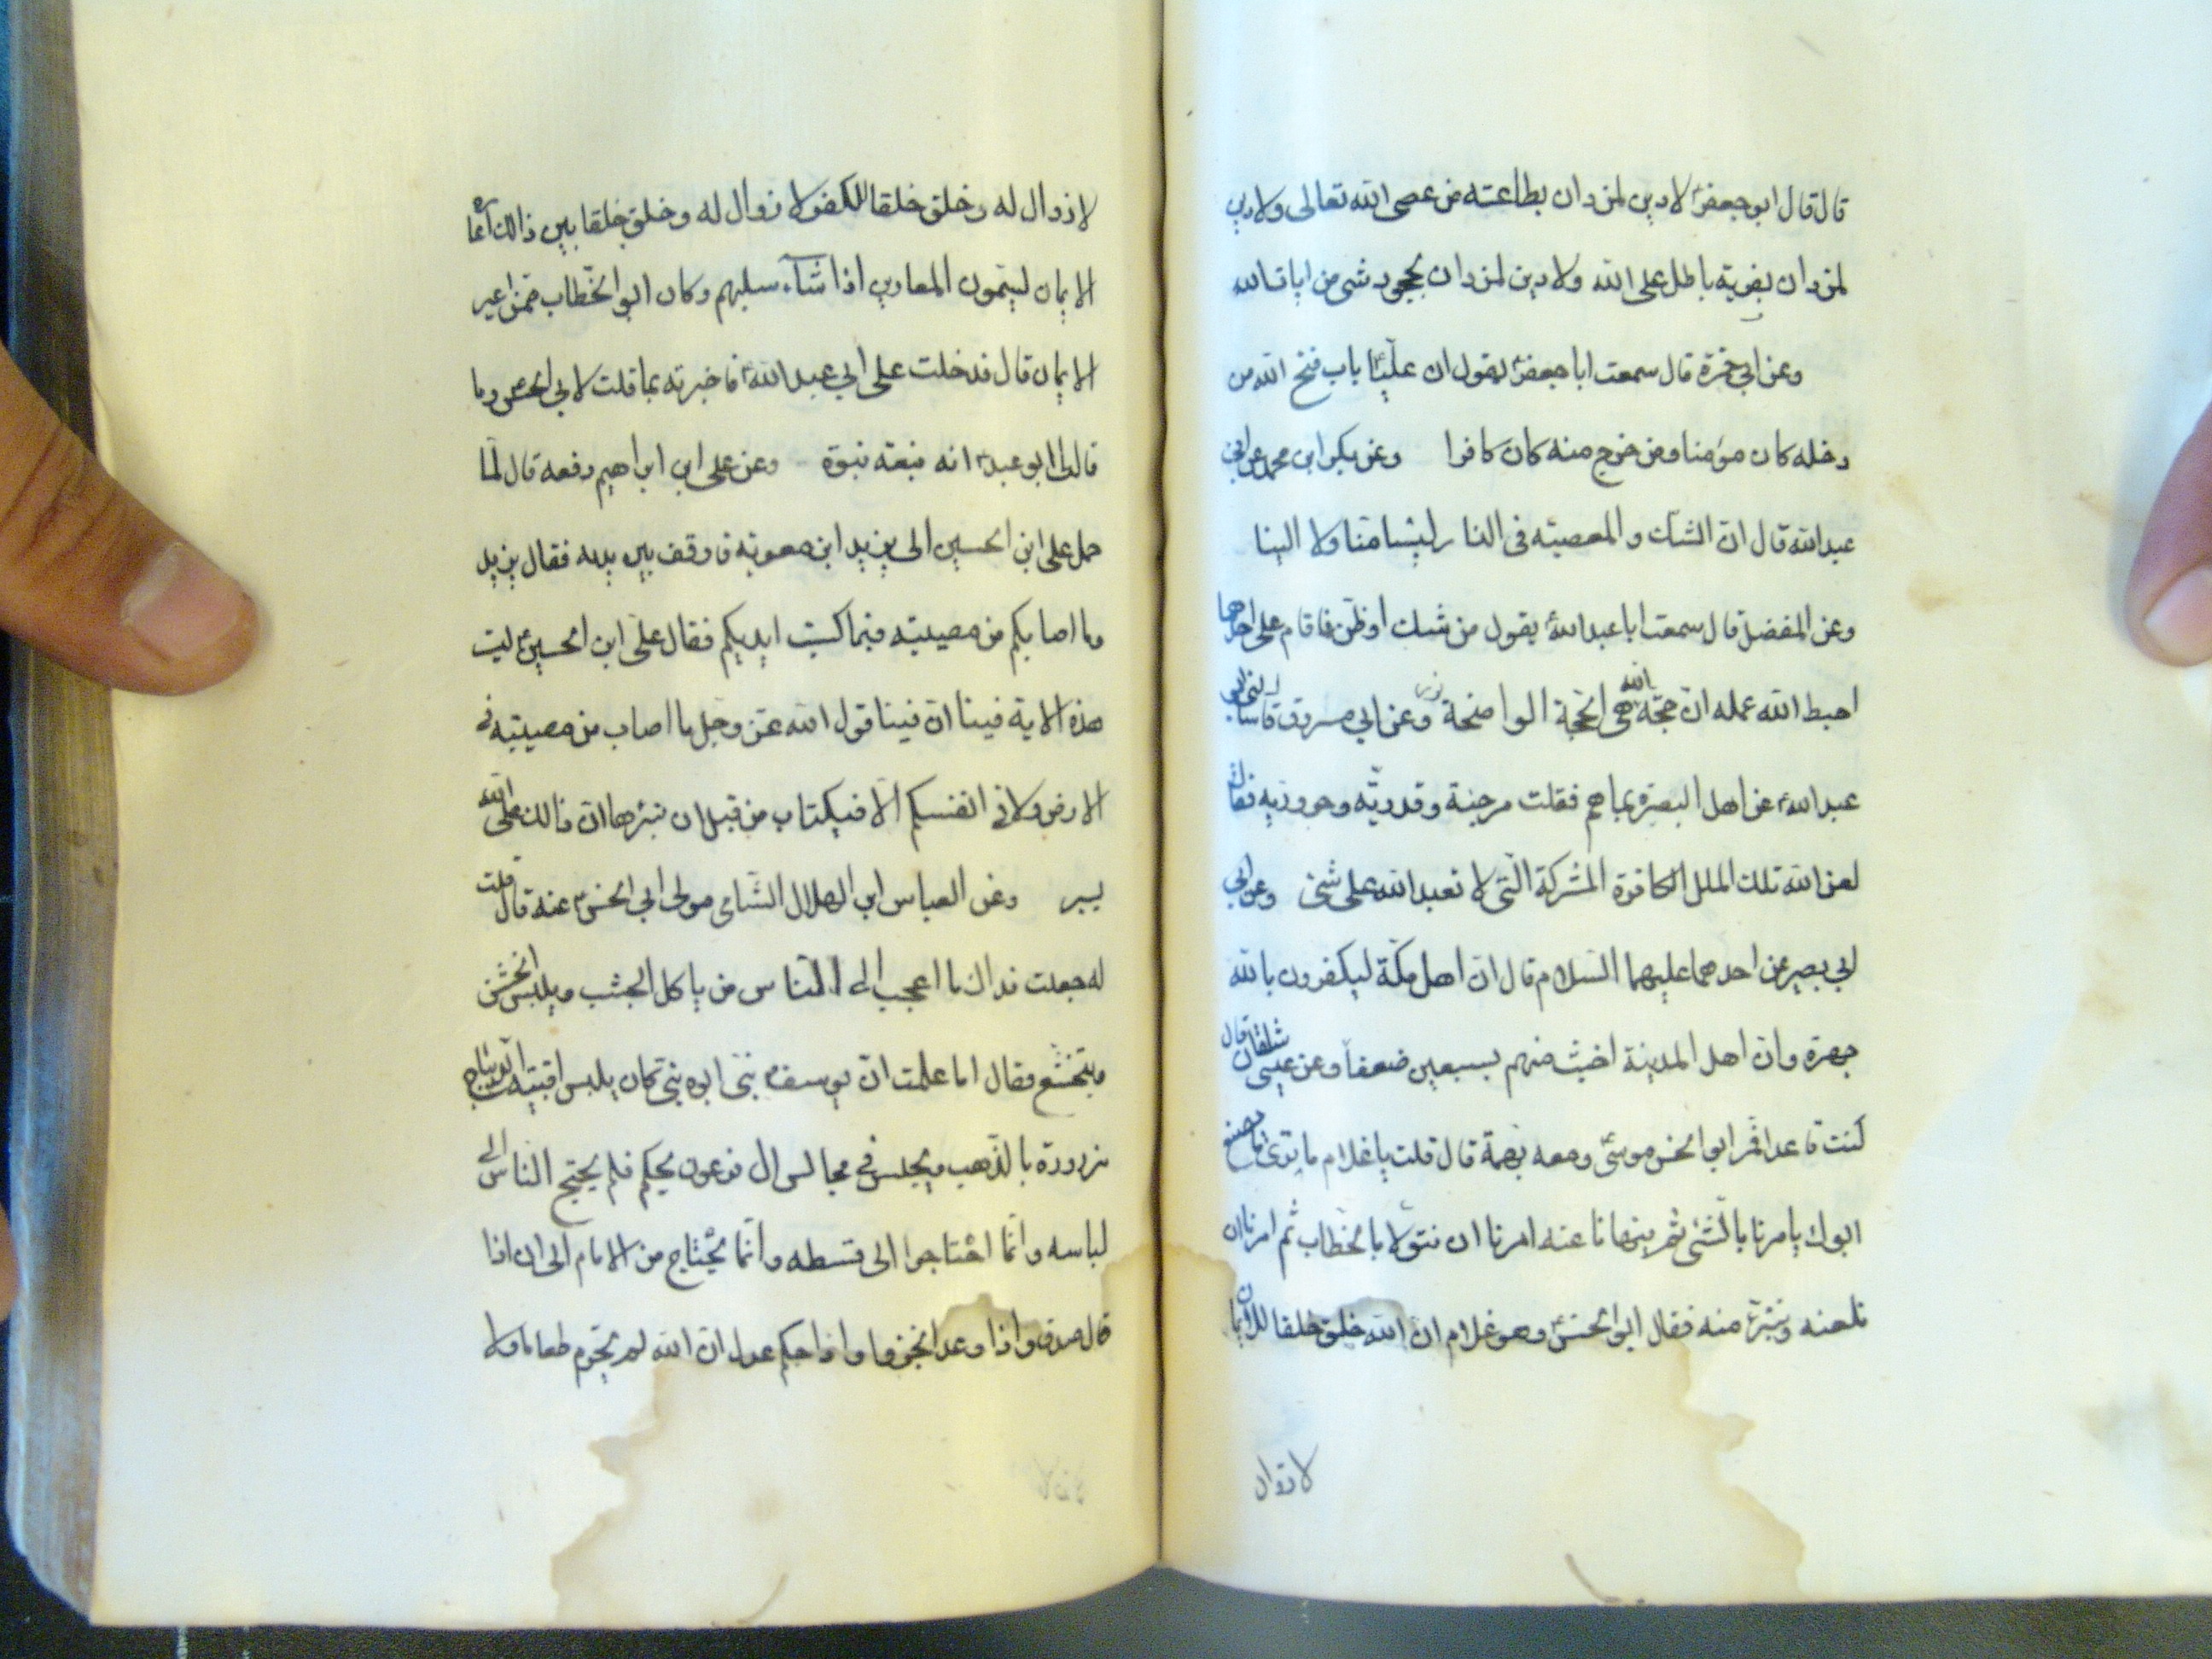 قال قال ابو جعفرؑ لا دين لمن دان بطاعته من عصى الله تعالى ولا دين
لمن دان بفرية باطل على الله ولا دين لمن دان بجحود شى من ايات الله
وعن ابي حمزة قال سمعت ابا جعفرؑ يقول ان عليّاً باب فتح الله من
دخله كان مؤمنا ومن خرج منه كان كافرا وعن بكر ابن محمد عن ابي
عبد الله قال ان الشك والمعصيته فى النار ليسا منا ولا الينا
وعن المفضل قال سمعت ابا عبد اللهؑ يقول من شك او ظن فاقام على احدهما
احبط الله عمله ان حجّة الله هى الحجة الواضحة وعن ابي مسروق قا سالنى ابو
عبد اللهؑ عن اهل البصرة بما هم فقلت مرجئة وقدريّه وحروريه فقال
لعن الله تلك الملل الكافرة المشركة الّتى لا تعبد الله على شى وعن ابي
ابي بصير عن احدهما عليهما السّلام قال انّ اهل مكّة ليكفرون بالله
جهرة وانّ اهل المدينة اخبث منهم بسبعين ضعفاً وعن عيسى شلقان قال
كنت قاعدا فمر ابو الحسن موسىؑ ومعه بهمة قال قلت يا غلام ما ترى ما يصنع
ابوك يامرنا بالشئ ثم ينهانا عنه امرنا ان نتولا بالخطاب ثم امرنا ان
نلعنه ونتبرّا منه فقال ابو الحسنؑ وهو غلام انّ الله خلق خلقا للايمان
لا زوال
لا زوال له وخلق خلقا للكفر لا زوال له وخلق خلقا بين ذالك اعاره
الايمان ليسمّون المعارين اذا شاء سلبهم وكان ابو الخطّاب ممّن اعير
الايمان قال فدخلت على ابي عبد اللهؑ فاخبرته بما قلت لابي الحسنؑ وما
قال لى ابو عبدؑ انه نبعته نبوة وعن على ابن ابراهيم رفعه قال لمّا
حمل على ابن الحسين الى يزيد ابن معوية فاوقف بين يديه فقال يزيد
وما اصابكم من مصيبته فبما كسبت ايديكم فقال علىّ ابن الحسينؑ ليت
هذه الاية فينا انّ فينا قول الله عزّ وجل ما اصاب من مصيبته فى
الارض ولا فى انفسكم الّا فى كتاب من قبل ان نبرءها انّ ذالك على الله
يسير وعن العباس ابن الهلال الشّامى مولى ابي الحسنؑ عنه قال قلت
له جعلت فداك ما اعجب الى النّاس من ياكل الجشب ويلبس الخشن
ويتخشّع فقال اما علمت انّ يوسفؑ نبّى ابوه نبّى كان يلبس اقبيته الديباج
مزرورة بالذّهب ويجلس فى مجالس ال فرعون يحكم فلم يحتج الناس الى
لباسه وانّما احتاجوا الى قسطه وانّما يحتاج من الامام الى ان اذا
قال صدق واذا وعد انجز وما واذا حكم عدل انّ الله لم يحرّم طعاما ولا